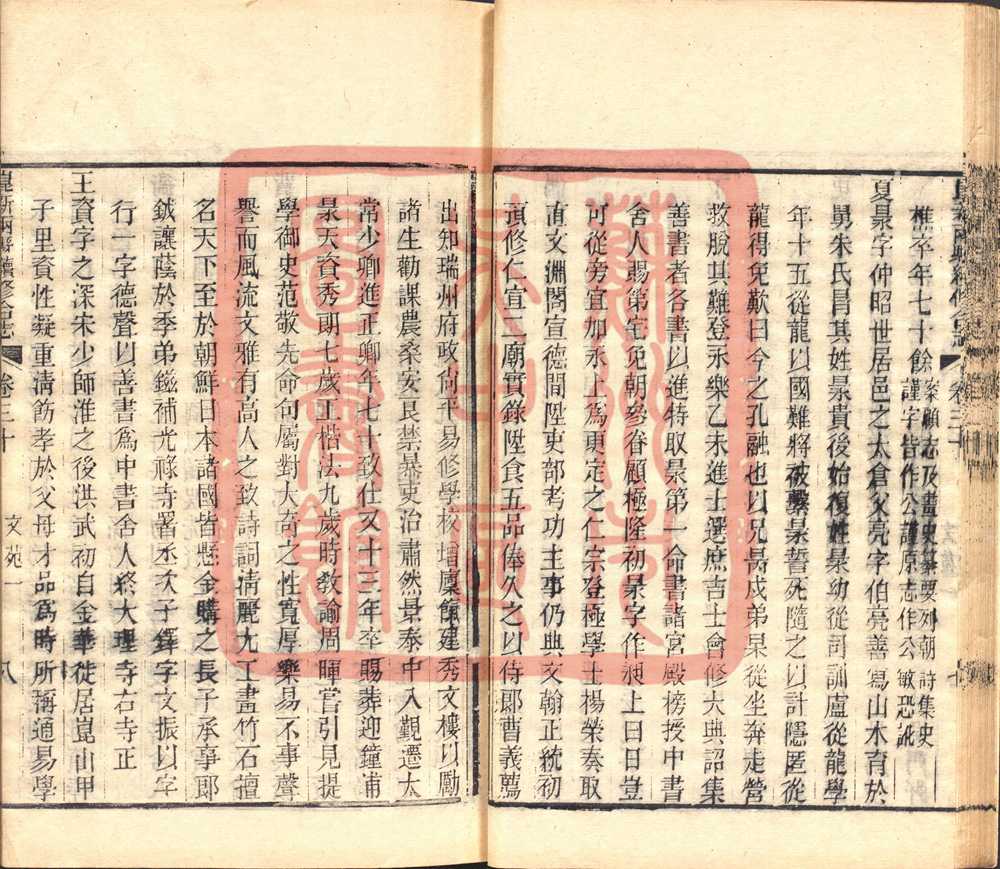 樵卒年七十餘案顧志及畫史纂要列朝詩集史
謹字皆作公謹原志作公敏恐訛
夏昺字仲昭世居邑之太倉父亮字伯亮善寫山水育於
舅朱氏冒其姓昺貴後始復姓昺幼從司訓盧從龍學
年十五從龍以國難將被繫昺誓死隨之以計隱匿從
龍得免歎曰今之孔融也以兄昺戍弟杲從坐奔走營
救脫其難登永樂乙未進士選庶吉士會修大典詔集
善書者各書以進特取昺第一命書諸宮殿榜授中書
舍人賜第宅免朝參眷顧極隆初昺字作昶上曰日豈
可從旁宜加永上為更定之仁宗登極學士楊榮奏取
直文淵閣宣德間陞吏部考功主事仍典文翰正統初
預修仁宣二廟實錄陞食五品俸久之以侍郎曹義薦
出知瑞州府政尚平易修學校增廩餼建秀文樓以勵
諸生勸課農桑安良禁暴吏治肅然景泰中入覲遷太
常少卿進正卿年七十致仕又十三年卒賜葬迎鐘浦
昺天資秀朗七歲工楷法九歲時教諭周暉嘗引見提
學御史范敬先命句屬對大奇之性寬厚樂易不事聲
譽而風流文雅有高人之致詩詞清麗尤工畫竹石擅
名天下至於朝鮮日本諸國皆懸金購之長子承事郎
鉞讓蔭於季弟鎡補光祿寺署丞次子鐸字文振以字
行一字德聲以善書為中書舍人終大理寺右寺正
王資字之深宋少師淮之後洪武初自金華徙居崑山甲
子里資性凝重清飭孝於父母才品為時所稱通易學
崑新兩縣續修合志 卷三十 文苑一 八